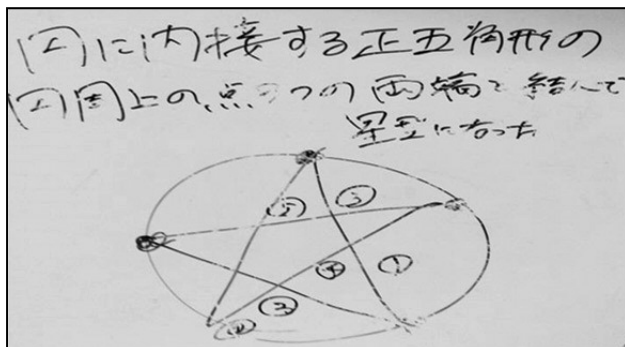 円に内接する正五角形の
円周上の点5つの両端を結んで
星型になった
⑤
③
④
①
②